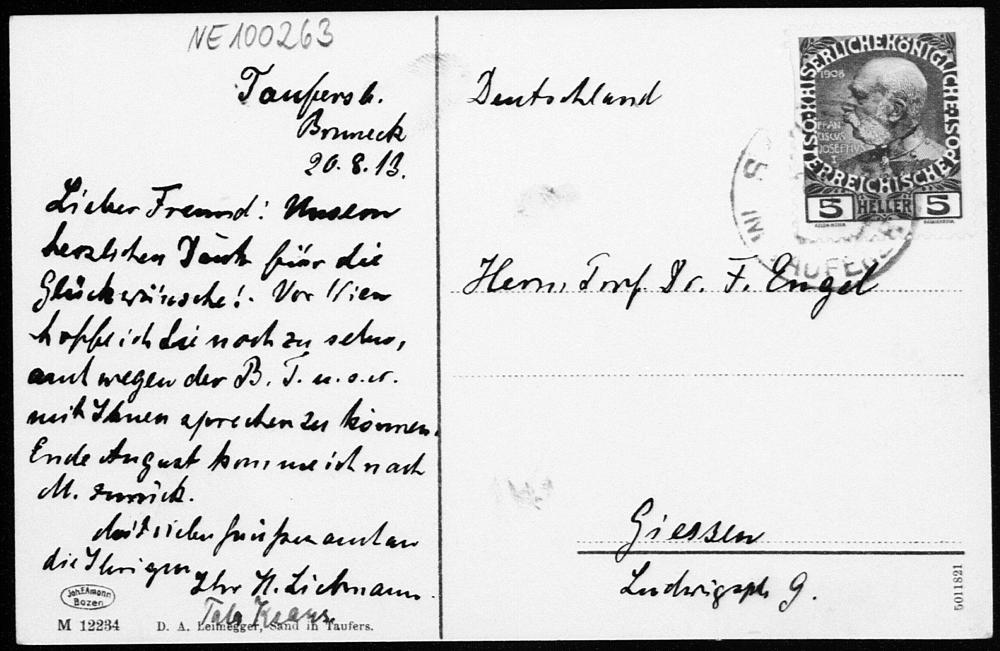 NE100263
Taufers b.
Bruneck
20.8.13.
Lieber Freund! Unseren
herzlichen Dank für die
Glückwünsche! Vor Wien
hoffe ich Sie noch zu sehen,
auch wegen der B. T. u.s.w.
mit Ihnen sprechen zu können.
Ende August komme ich nach
M. zurück.
Mit vielen Grüßen auch an
die Ihrigen
Ihr H. Liebmann
Joh. F. Amonn
Bozen
M 12234
D. A. Leimegger, Sand in Taufers.
Deutschland
KAISERLICHE KÖNIGLICHE
ÖSTERREICHISCHE POST
1908
FRAN
CISCUS
JOSEPHUS
I
5 HELLER 5
Herrn Prof. Dr. F. Engel
Giessen
Ludwigsplz 9.
5011821